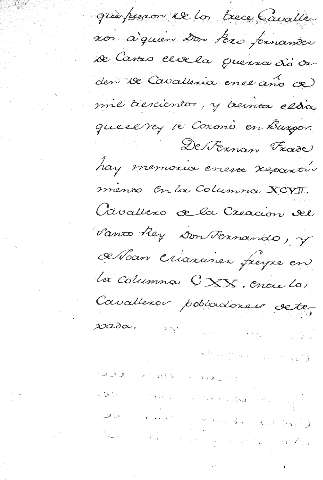 que fueron de los trece Cavalle-
ros à quien Don Pero fernandez
de Castro el de la guerra dió or-
den de Cavalleria en el año de
mil trescientos, y treinta el dia
que el rey se Coronó en Burgos.
De Fernan Frade
hay memoria en este reparti-
miento en la Columna XCVII.
Cavallero de la Creacion del
Santo Rey Don Fernando, y
de Joan Martinez freyre en
la columna CXX. en los
Cavalleros pobladores de Xe-